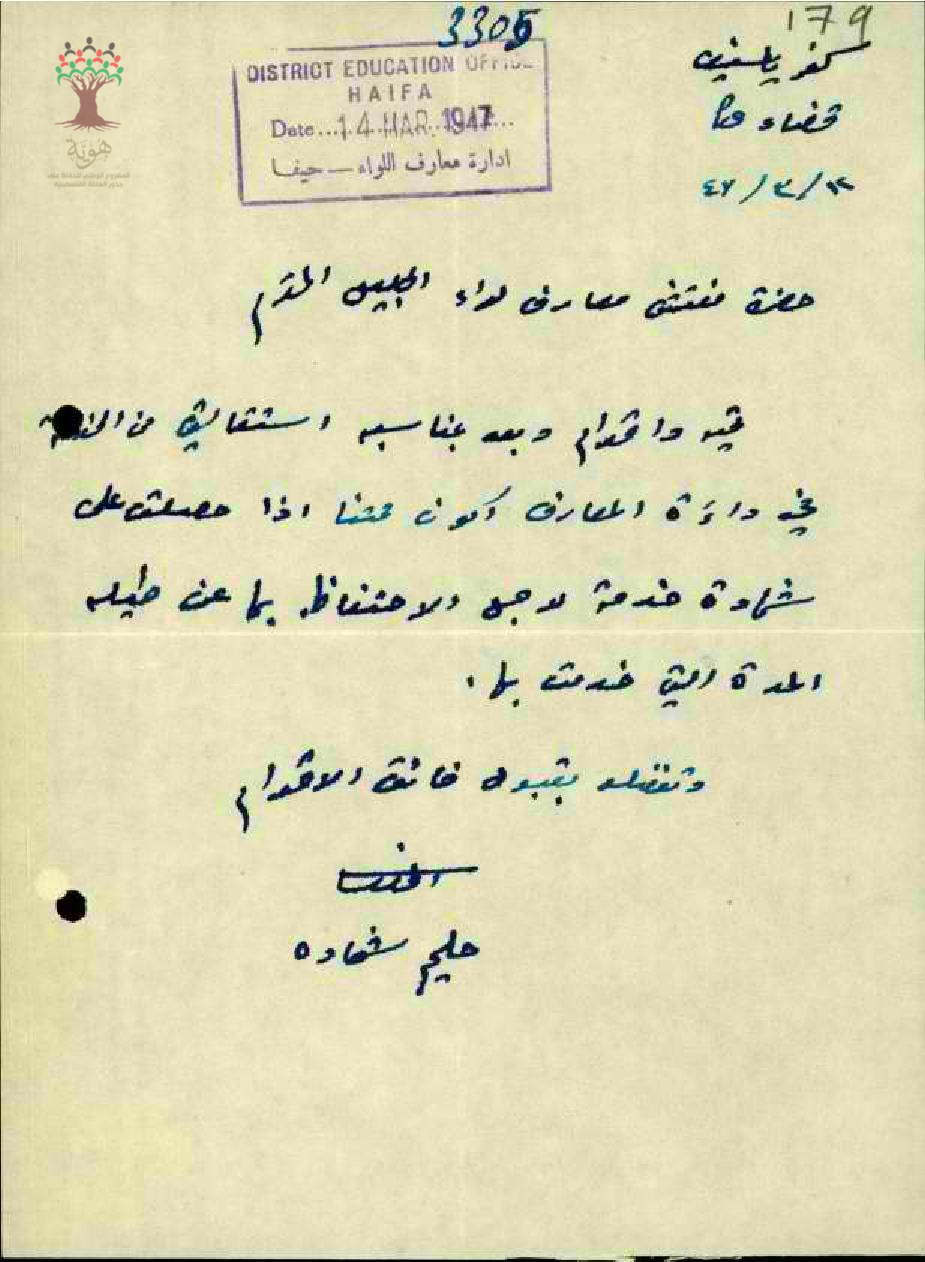 3305
179
DISTRICT EDUCATION OFFICE
HAIFA
Date...14 MAR. 1947...
ادارة معارف اللواء — حيفا
هوية
المشروع الوطني للحفاظ على
جذور العائلة الفلسطينية
كفر ياسيف
قضاء عكا
١٢/٣/٤٧
حضرة مفتش معارف لواء الجليل المحترم
تحية واحترام وبعد بمناسبة استقالتي من الخدمة
في دائرة المعارف اكون ممتنا اذا حصلت على
شهادة خدمة لاجل الاحتفاظ بها عن طيلة
المدة التي خدمت بها.
وتفضلو بقبول فائق الاحترام
المخلص
حليم شحاده